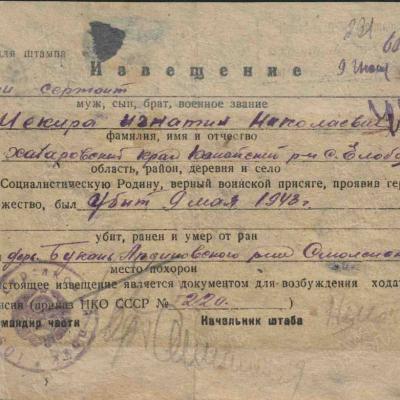 для штампа
231
9 июн
Извещение
сержант
муж, сын, брат, военное звание
Секира Игнатий Николаевич
фамилия, имя и отчество
Хабаровский край
область, район, деревня и село
Социалистическую Родину, верный воинской присяге, проявив ге
жество, был убит 9 мая 1943 г.
убит, ранен и умер от ран
дер. Букань
место похорон
стоящее извещение является документом для возбуждения ходат
нсии (приказ НКО СССР № 220.)
омандир части Начальник штаба